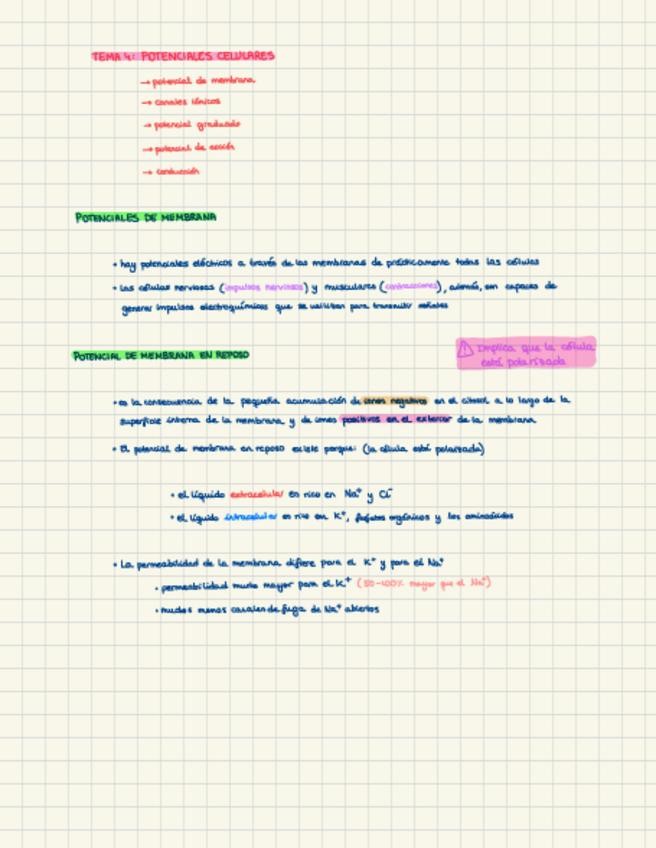 TEMA 4: POTENCIALES CELULARES
→ potencial de membrana
→ canales iónicos
→ potencial graduado
→ potencial de acción
→ conducción
POTENCIALES DE MEMBRANA
• hay potenciales eléctricos a través de las membranas de prácticamente todas las células
• las células nerviosas (impulsos nerviosos) y musculares (contracciones), además, son capaces de
generar impulsos electroquímicos que se utilizan para transmitir señales
POTENCIAL DE MEMBRANA EN REPOSO
⚠ Implica que la célula
está polarizada
• es la consecuencia de la pequeña acumulación de iones negativos en el citosol a lo largo de la
superficie interna de la membrana y de iones positivos en el exterior de la membrana
• El potencial de membrana en reposo existe porque: (la célula está polarizada)
• el líquido extracelular es rico en Na⁺ y Cl⁻
• el líquido intracelular es rico en K⁺, fosfatos orgánicos y los aminoácidos
• La permeabilidad de la membrana difiere para el K⁺ y para el Na⁺
• permeabilidad mucho mayor para el K⁺ (50-100% mayor que el Na⁺)
• muchos menos canales de fuga de Na⁺ abiertos